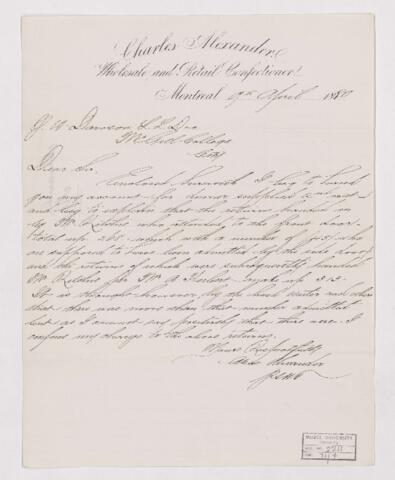 Charles Alexander,
Wholesale and Retail Confectioner
Montreal 9th April 1880
J W Dawson L.L.D
McGill College
City
Dear Sir,
Enclosed herewith I beg to hand
you my account for dinner supplied
and beg to explain that the returns handed in
by Mr who attended to the front door
total up 268 which with a number of (45) who
are supposed to have been admitted by the side door
and the returns of which were subsequently handed
Mr per Mr A make up 313.
It is thought however by the head waiter and others
that there was more than that number admitted
but as I cannot say positively that this was I
confine my charge to the above returns.
Yours Respectfully
Chas Alexander
McGILL UNIVERSITY
ARCHIVES
ACC. NO.
REF.